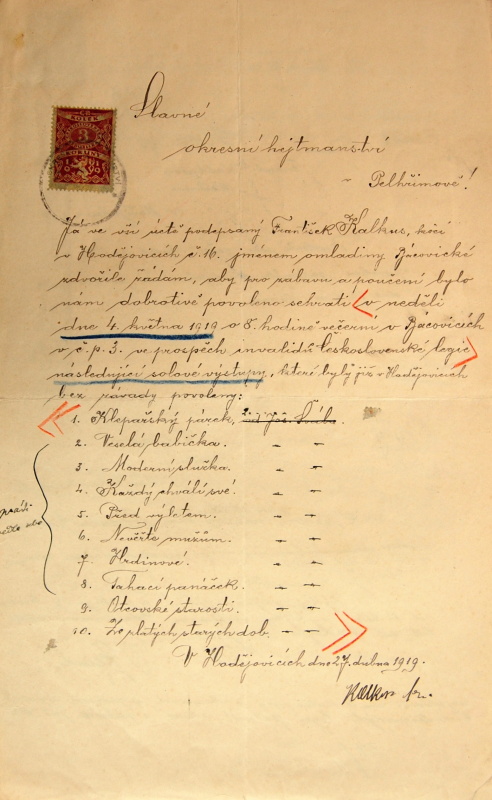 Slavné
okresní hejtmanství
v Pelhřimově!
3
Já ve vší úctě podepsaný František Kalkus, krčí
v Hodějovicích č. 16. jménem omladiny Bácovické
zdvořile žádám, aby pro zábavu a poučení bylo
nám dobrotivě povoleno sehráti v neděli
dne 4. května 1919 o 8. hodině večerní v Bácovicích
v č. p. 3. ve prospěch invalidů Československé legie
následující solové výstupy, které byly již v Hodějovicích
bez závady povoleny:
1. Klepařský párek, Jos. Šváb.
2. Veselá babička. " "
3. Moderní služka. " "
4. Každý chválí své. " "
5. Před výletem. " "
6. Nevěřte mužům. " "
7. Hrdinové. " "
8. Tahací panáček. " "
9. Otcovské starosti. " "
10. Ze zlatých starých dob. " "
V Hodějovicích dne 27. dubna 1919.
Kalkus Fr.